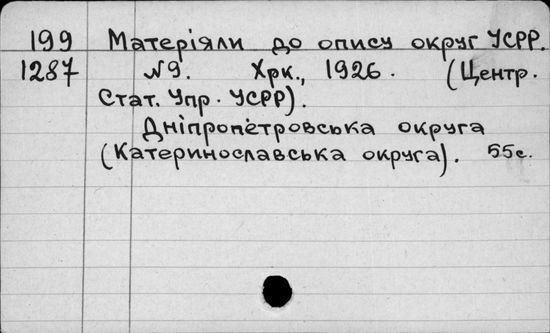 199 Матеріяли до опису округ УСРР.
1287 №9. Хрк., 1926. (Центр.
Стат. Упр. УСРР).
Дніпропетровська округа
(Катеринославська округа). 55с.